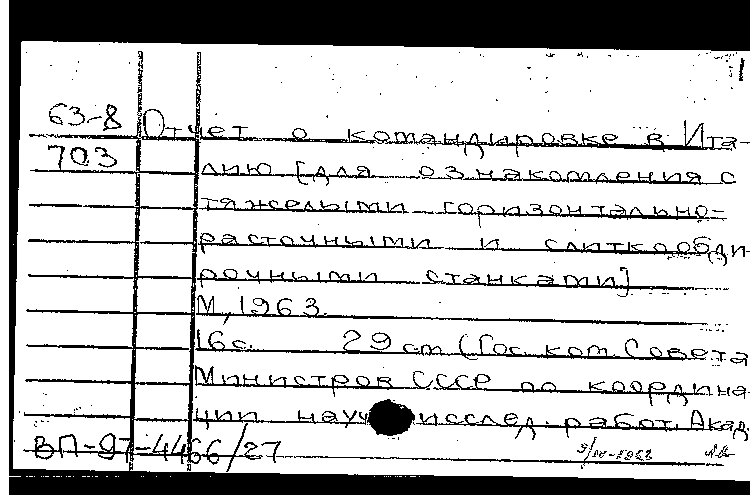 1
63-8 Отчет о командировке в Ита-
703 лию [для ознакомления с
тяжелыми горизонтально-
расточными и слиткообди
рочными станками]
М, 1963.
16с. 29 см (Гос. ком. Совета
Министров СССР по координа
ции науч исслед. работ. Акад.
ВП-97-4466/27